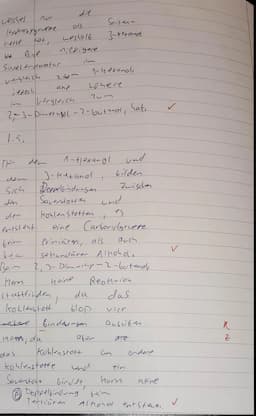 welches nur die
als Seiten-
kette hat, weshalb 3-Hexanol
eine niedrigere
Siedetemperatur im
vergleich zum 1-Hexanol
jedoch eine höhere
im vergleich zum
2,3-Dimethyl-2-butanol, hat. ✓
1.4.
dem 1-Hexanol und
dem 3-Hexanol, bilden
sich Doppelbindungen zwischen
den Sauerstoff und
den Kohlenstoffen, es
entsteht eine Carbonylgruppe
beim Primären, als auch
beim sekundären Alkohol. ✓
Beim 2,3-Dimethyl-2-butanol
kann keine Reaktion
stattfinden, da das
Kohlenstoff bloß vier
Bindungen R
kann, da Z
das Kohlenstoff an andere
Kohlenstoffe und ein
Sauerstoff bindet, kann keine
Doppelbindung beim
Tertiären Alkohol entstehen. ✓